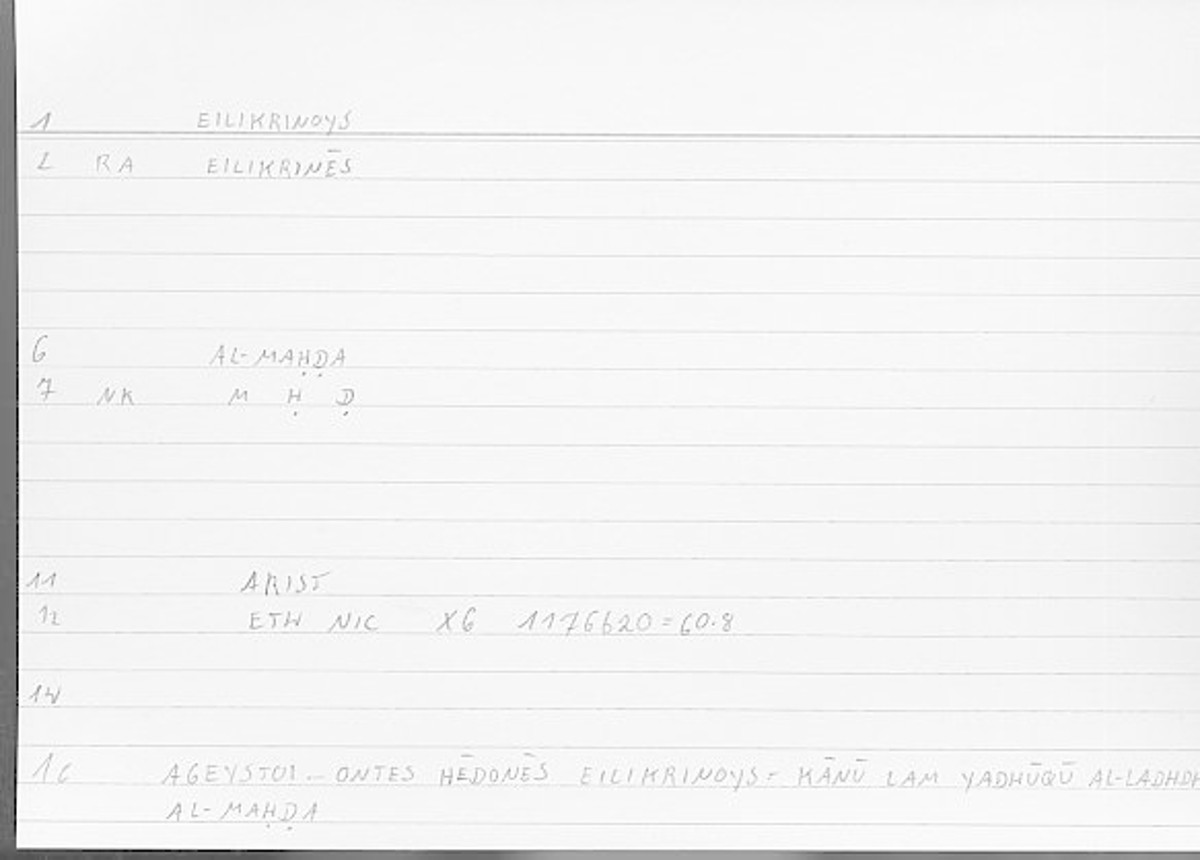 1 EILIKRINOYS
2 RA EILIKRINĒS
6 AL-MAḤḌA
7 NK M Ḥ Ḍ
11 ARIST
12 ETH NIC X6 1176b20=60.8
14
16 AGEYSTOI – ONTES HĒDONĒS EILIKRINOYS = KĀNŪ LAM YADHŪQŪ AL-LADHDH
AL-MAḤḌA